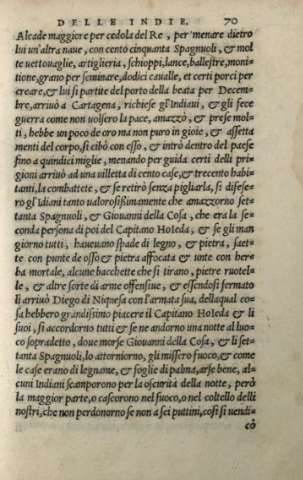 DELLE INDIE. 70
Alcade maggiore per cedola del Re, per menare dietro
lui un'altra naue, con cento cinquanta Spagnuoli, & mol
te uettouaglie, artiglieria, schioppi, lance, ballestre, moni=
tione, grano per seminare, dodici caualle, et certi porci per
creare, & lui si partite del porto della beata per Decem=
bre, arriuò a Cartagena, richiese gl'Indiani, & gli fece
guerra come non uolsero la pace, amazzò, & prese mol=
ti, hebbe un poco de oro ma non puro in gioie, & assetta
menti del corpo, si cibò con esso, & intrò dentro del paese
fino a quindici miglie, menando per guida certi delli pri=
gioni arriuò ad una uilletta di cento case, & trecento habi=
tanti, la combattete, & se retirò senza pigliarla, si difese=
ro gl'Idiani tanto ualorosissimamente che amazzorno set=
tanta Spagnuoli, & Giouanni della Cosa, che era la se=
conda persana di poi del Capitano Hoieda; & se gli man
giorno tutti, haueuano spade di legno, & pietra, saet=
te con punte de osso & pietra affocata & unte con her=
ba mortale, alcune bacchette che si tirano, pietre ruotel=
le, & altre sorte di arme offensiue, & essendosi fermato
li arriuò Diego di Niquesa con l'armata sua, dellaqual co=
sa hebbero grandissimo piacere il Capitano Hoieda & li
suoi, si accordorno tutti & se ne andorno una notte al luo=
co sopradetto, doue morse Giouanni della Cosa, & li set=
tanta Spagnuoli, lo attorniorno, gli missero fuoco, & come
le case erano di legname, & foglie di palma, arse bene, al=
cuni Indiani scamporono per la oscurità della notte, però
la maggior parte, o cascorono nel fuoco, o nel coltello delli
nostri, che non perdonorno se non a sei puttini, cosi si uendi=
cò